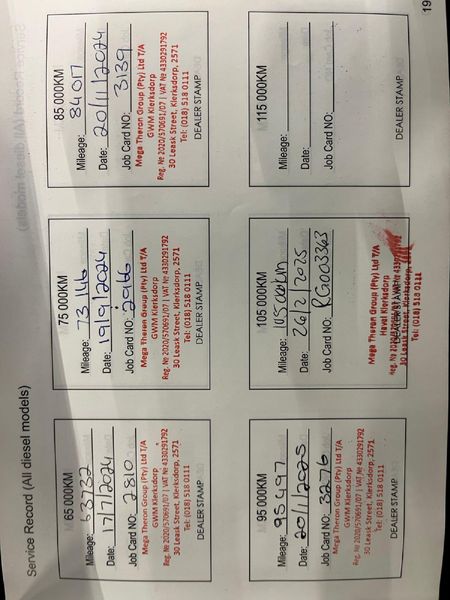 Service Record (All diesel models)
65 000KM
Mileage: 63732
Date: 17/7/2024
Job Card NO: 2810
Mega Theron Group (Pty) Ltd T/A
GWM Klerksdorp
Reg. № 2020/570691/07 | VAT № 4330291792
30 Leask Street, Klerksdorp, 2571
Tel: (018) 518 0111
DEALER STAMP
75 000KM
Mileage: 73 146
Date: 19/9/2024
Job Card NO: 2966
Mega Theron Group (Pty) Ltd T/A
GWM Klerksdorp
Reg. № 2020/570691/07 | VAT № 4330291792
30 Leask Street, Klerksdorp, 2571
Tel: (018) 518 0111
DEALER STAMP
85 000KM
Mileage: 84 017
Date: 20/11/2024
Job Card NO: 3139
Mega Theron Group (Pty) Ltd T/A
GWM Klerksdorp
Reg. № 2020/570691/07 | VAT № 4330291792
30 Leask Street, Klerksdorp, 2571
Tel: (018) 518 0111
DEALER STAMP
95 000KM
Mileage: 95 497
Date: 20/1/2025
Job Card NO: 3276
Mega Theron Group (Pty) Ltd T/A
GWM Klerksdorp
Reg. № 2020/570691/07 | VAT № 4330291792
30 Leask Street, Klerksdorp, 2571
Tel: (018) 518 0111
DEALER STAMP
105 000KM
Mileage:
Date: 26/2/2025
Job Card NO: RG003363
Mega Theron Group (Pty) Ltd T/A
Haval Klerksdorp
Reg. № 2020/570691/07 | VAT № 4330291792
DEALER STAMP
30 Leask Street, Klerksdorp,
Tel: (018) 518 0111
115 000KM
Mileage:
Date:
Job Card NO:
DEALER STAMP
19